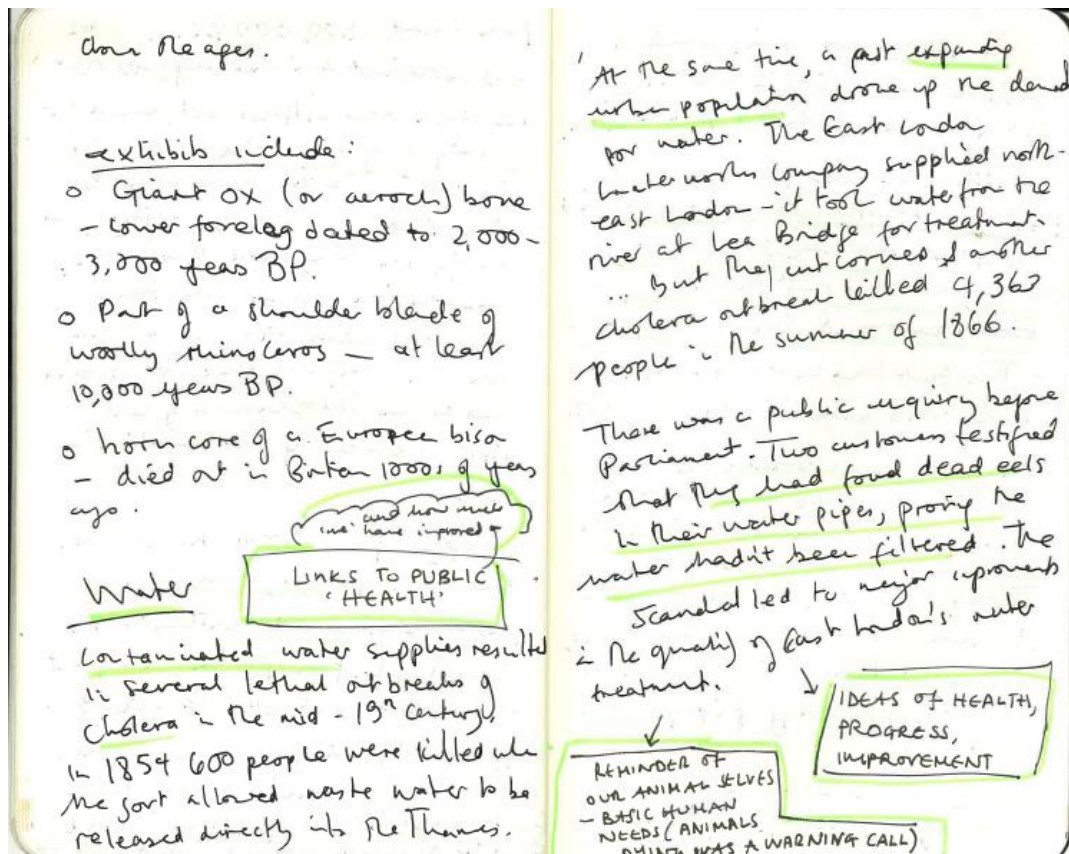 down the ages.
exhibits include:
o Giant Ox (or aeroch) bone
- lower foreleg dated to 2,000 -
3,000 years BP.
o Part of a shoulder blade of
woolly rhinoceros - at least
10,000 years BP.
o horn core of a European bison
- died out in Britain 1000s of years
ago.
and how much
'we' have improved
LINKS TO PUBLIC
'HEALTH'
Water
Contaminated water supplies resulted
in several lethal outbreaks of
cholera in the mid-19th century.
In 1854 600 people were killed when
the govt allowed waste water to be
released directly into the Thames.
'At the same time, a past expanding
urban population drove up the demand
for water. The East London
Waterworks Company supplied north-
east London - it took water from the
river at Lea Bridge for treatment.
... But they cut corners & another
cholera outbreak killed 4,363
people in the summer of 1866.
There was a public enquiry before
Parliament. Two customers testified
that they had found dead eels
in their water pipes, proving the
water hadn't been filtered. The
scandal led to major improvements
in the quality of East London's water
treatment.
IDEAS OF HEALTH,
PROGRESS,
IMPROVEMENT
REMINDER OF
OUR ANIMAL SELVES
- BASIC HUMAN
NEEDS (ANIMALS
DYING WAS A WARNING CALL)